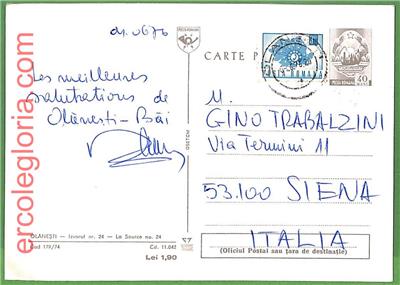 CARTE P
POSTA ROMANA
40
Les meilleures
salutations de
Olănești-Băi
M.
GINO TRABALZINI
Via Termini 11
53.100 SIENA
ITALIA
(Oficiul Poștal sau țara de destinație)
OLĂNEȘTI — Izvorul nr. 24 — La Source no. 24
Cod 179/74
Cd. 11.042
Lei 1,90
ercolegloria.com